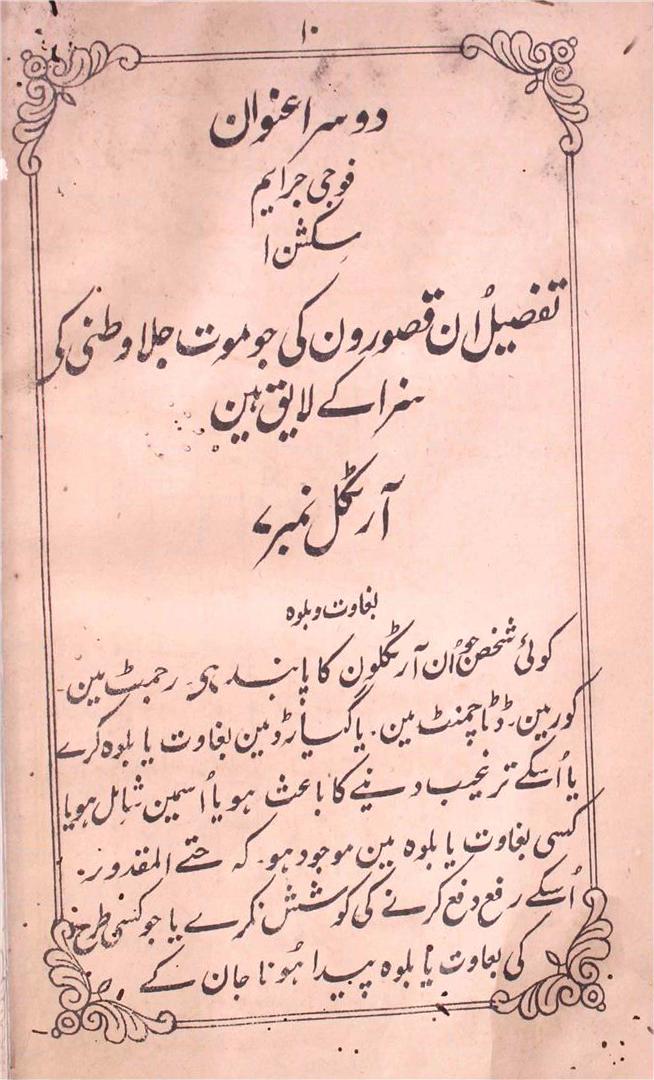 ۱۰
دوسرا عنوان
فوجی جرایم
سکشن ۱
تفصیل اُن قصورون کی جو موت جلاوطنی کی
سزا کے لایق ہین
آرٹکل نمبر ۷
بغاوت و بلوہ
کوئی شخص جو اُن آرٹکلون کا پابند ہی۔ رجمنٹ مین۔
کور مین۔ ڈٹاچمنٹ مین۔ یا گیارڈ مین بغاوت یا بلوہ کرے
یا اُسکے ترغیب دینے کا باعث ہو یا اُسمین شامل ہو یا
کسی بغاوت یا بلوہ مین موجود ہو۔ کہ حتے المقدور۔
اُسکے رفع دفع کرنے کی کوشش نکرے یا جو کسی طرح
کی بغاوت یا بلوہ پیدا ہونا جان کے